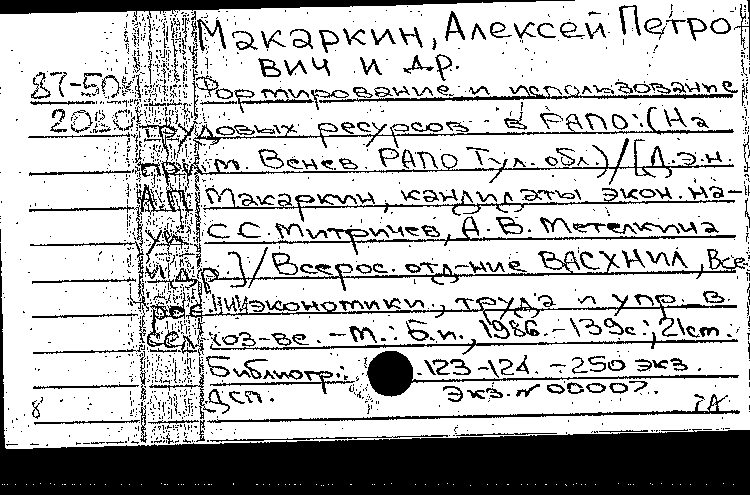 Макаркин, Алексей Петро-
вич и др.
87-50
Формирование и использование
2080
трудовых ресурсов в РАПО: (На
прим. Венев. РАПО Тул. обл.) / [Д.э.н.
А.П. Макаркин, кандидаты экон. на-
ук С.С. Митричев, А.В. Метелкина
и др.] / Всерос. отд-ние ВАСХНИЛ, Все
рос НИИ экономики, труда и упр. в
сел хоз-ве. - М.: Б.и., 1986. - 139с; 21см.
Библиогр.: 123-124. - 250 экз.
Дсп. Экз. № 00007.
8 7А